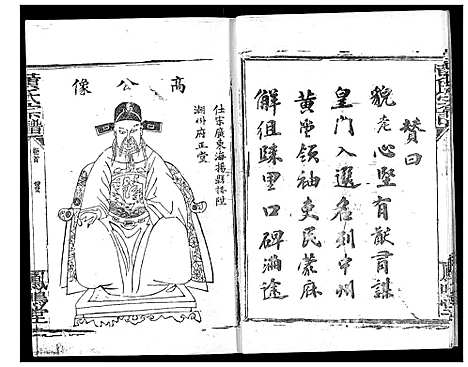 贊曰
貌老心堅有猷有謀
皇門入選名利中州
黄堂領袖吏民蒙庥
解組歸里口碑滿途
高公像
仕宋廣東海揚縣陞
潮州府正堂
黃氏宗譜
卷首
鳳鳴堂